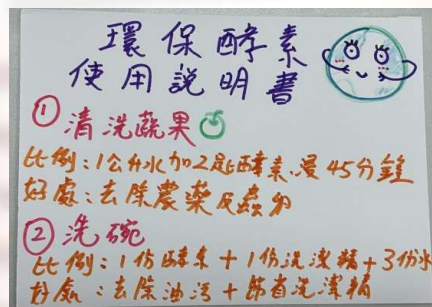 環保酵素
使用說明書
① 清洗蔬果
比例：1公升水加2匙酵素.浸45分鐘
好處：去除農藥及蟲卵
② 洗碗
比例：1份酵素+1份洗潔精+3份水
好處：去除油污+節省洗潔精